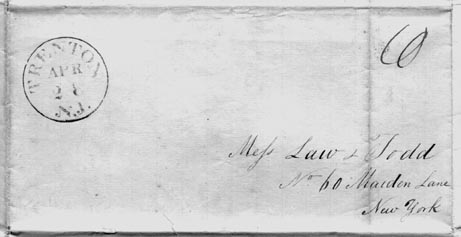 TRENTON
APR
28
N.J.
6
Mess Law & Todd
No 60 Maiden Lane
New York